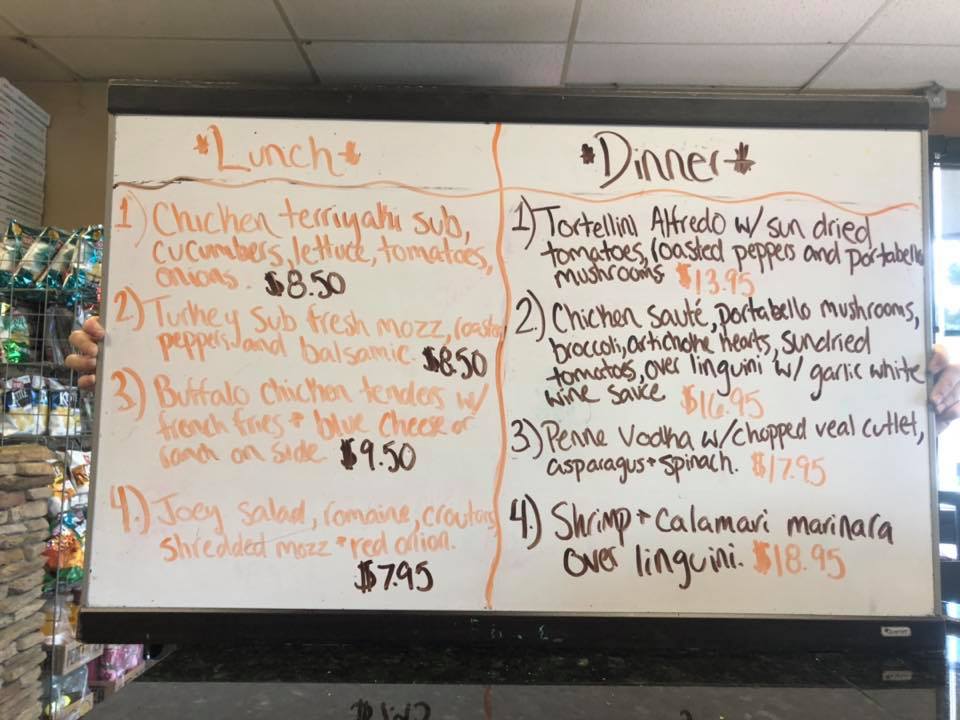 *Lunch*
1) Chicken terriyaki sub,
cucumbers, lettuce, tomatoes,
onions. $8.50
2) Turkey Sub fresh mozz, roasted
peppers, and balsamic. $8.50
3.) Buffalo Chicken tenders w/
french fries + blue cheese or
ranch on side $9.50
4.) Joey Salad, romaine, croutons,
Shredded mozz + red onion.
$7.95
*Dinner*
1) Tortellini Alfredo w/ sun dried
tomatoes, roasted peppers and portabello
mushrooms $13.95
2.) Chicken sauté, portabello mushrooms,
broccoli, artichoke hearts, sundried
tomatoes, over linguini w/ garlic white
wine sauce $16.95
3.) Penne Vodka w/chopped veal cutlet,
asparagus + spinach. $17.95
4.) Shrimp + Calamari marinara
over linguini. $18.95